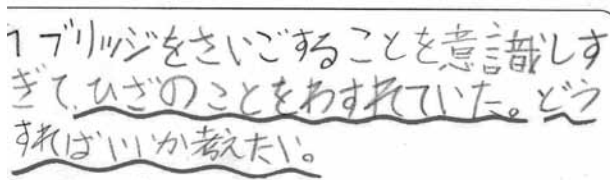 1 ブリッジをさいごすることを意識しす
ぎて、ひざのことをわすれていた。どう
すればいいか考えたい。